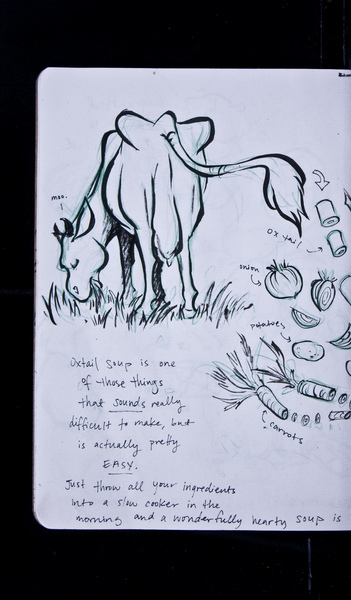 moo.
ox.tail
onion
potatoes
carrots
Oxtail Soup is one
of those things
that sounds really
difficult to make, but
is actually pretty
EASY.
Just throw all your ingredients
into a slow cooker in the
morning and a wonderfully hearty soup is